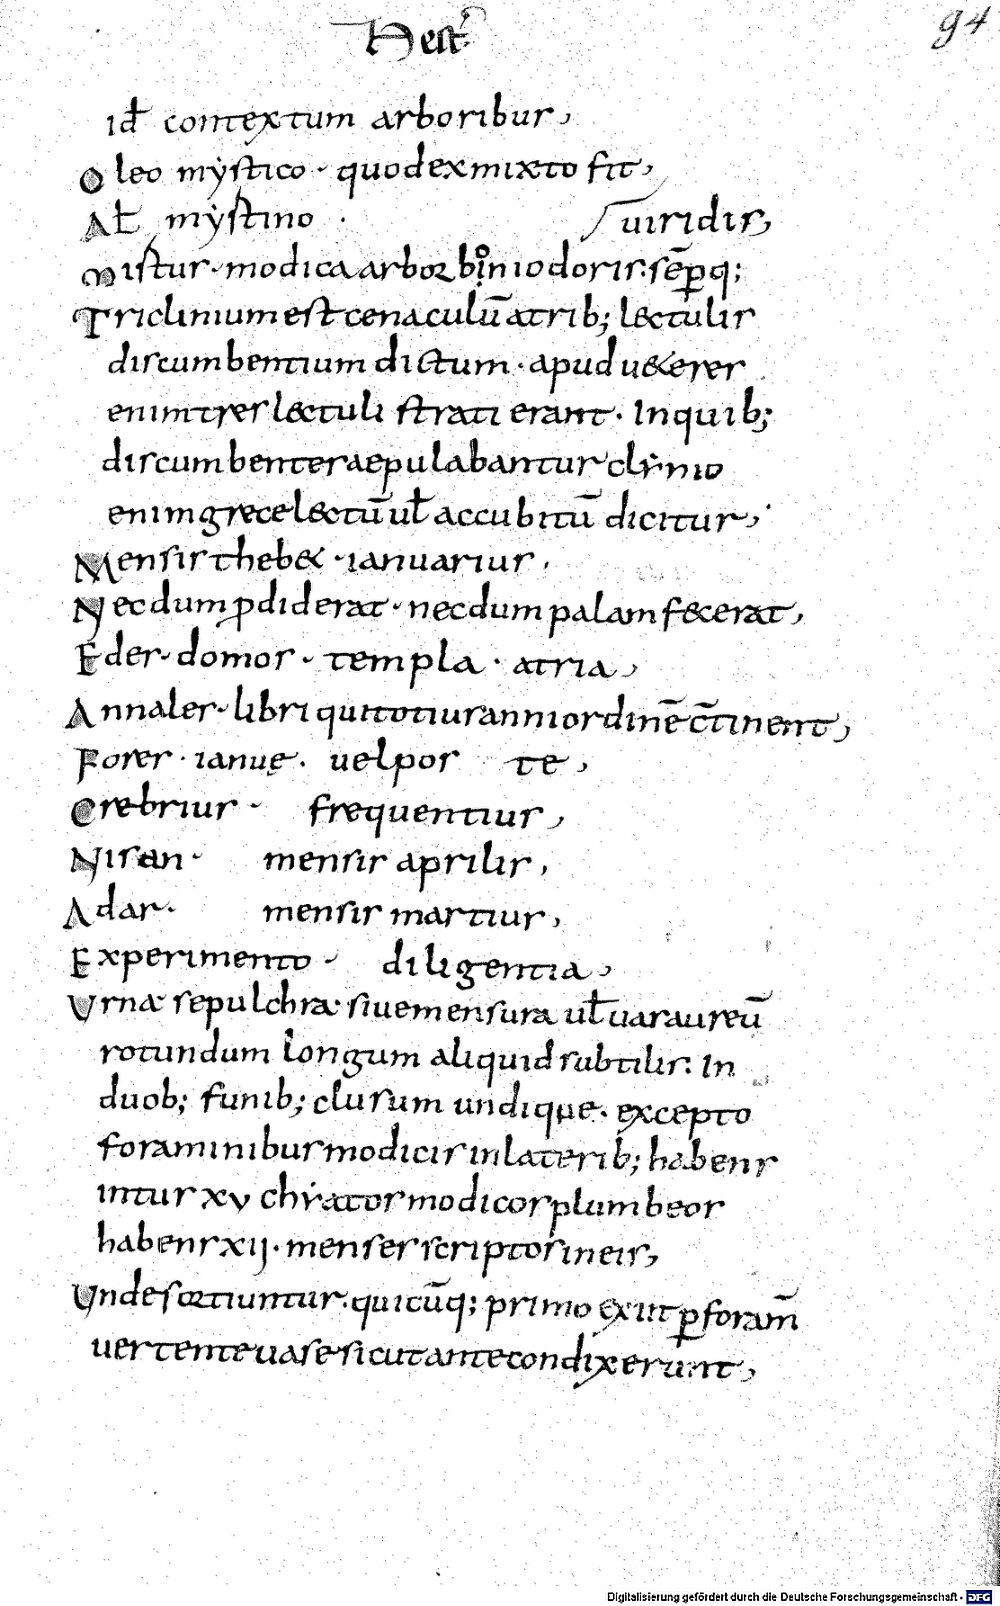 Hest᷒
94
id̄ contextum arboribus,
Oleo mẏstico · quod ex mixto fit,
Al̄ mẏstino · uiridis,
Mistus · modica arbor bonỉ odoris · sēꝑq;
Triclinium est cenaculū a trib; lectulis
discumbentium dictum · apud ueteres
enim tres lectuli strati erant · In quib;
discumbentes aepulabantur clẏnio
enim grece lectū ul̄ accubitū dicitur,
Mensis thebet · ianuarius,
Necdum ꝓdiderat · necdum palam fecerat,
Edes · domos · templa · atria,
Annales · libri qui totius anni ordinē c̄tinent,
Fores · ianuę · uel porte,
Crebrius · frequentius,
Nisan · mensis aprilis,
Adar · mensis martius,
Experimento · diligentia,
Urna sepulchra siue mensura ul̄ uas aureū
rotundum longum aliquid subtilis · In
duob; funib; clusum undique · excepto
foraminibus modicis in laterib; habens
intus xv chẏatos modicos plumbeos
habens xij · menses scriptos in eis,
Unde sortiuntur · quicūq; primo exiit ꝑ foram̄
uertente uase sicut ante condixerunt,
Digitalisierung gefördert durch die Deutsche Forschungsgemeinschaft - DFG